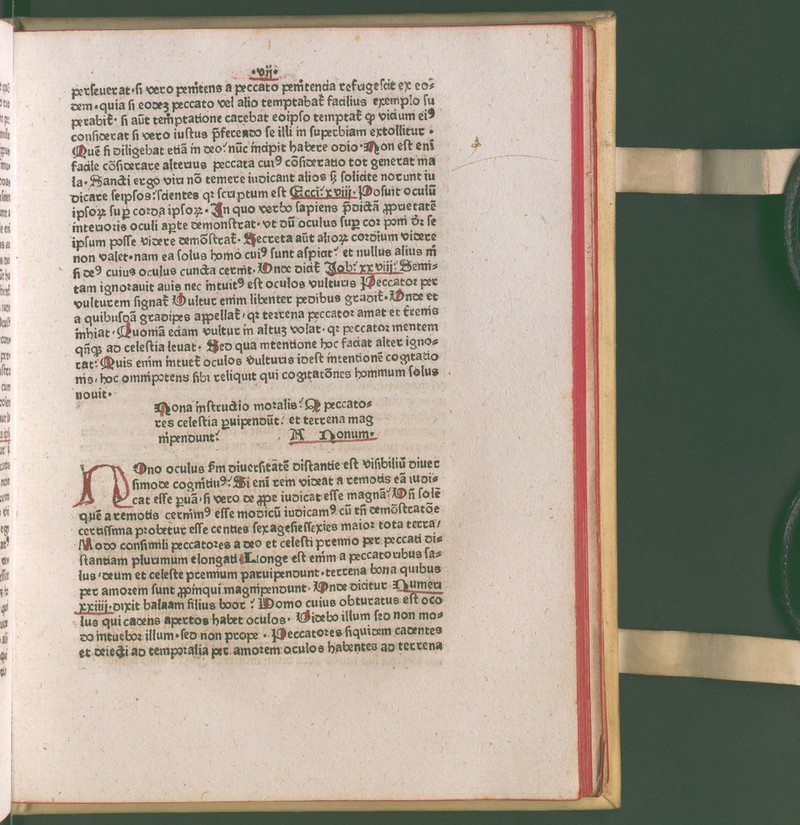 ·vij·
perseuerat·si vero penitens a peccato penitencia refugescit ex eo-
dem·quia si eodeȝ peccato vel alio temptabat̄ facilius exemplo su
perabit̄· si aūt temptatione carebat eoipso temptat̄ ꝙ vicium eiꝰ
considerat si vero iustus p̄ferendo se illi in superbiam extollitur·
Quē si diligebat etiā in deo/nūc incipit habere odio·Non est eni
facile cōsiderare alterius peccata cuiꝰ cōsideratio tot generat ma
la·Sancti ergo viri nō temere iudicant alios sꝫ solicite norunt iu
dicare seipsos/scientes qꝛ scriptum est Ecci/xviij·Posuit oculū
ipsoꝝ suꝑ corda ipsoꝝ·In quo verbo sapiens p̄dictā ꝓprietatē
interioris oculi aꝑte demonstrat·vt dū oculus suꝑ cor poni dr̄ se
ipsum posse videre demōstrat̄·Secreta aūt alioꝝ cordium videre
non valet·nam ea solus homo cuiꝰ sunt aspiat/et nullus alius nī
si deꝰ cuius oculus cuncta cernit·Vnde dicit̄ Job/xxviij·Semi-
tam ignorauit auis nec intuitꝰ est oculos vulturis Peccator per
vulturem signat̄ Vultur enim libenter pedibus gradit̄·Vnde et
a quibusdā gradipes appellat̄·qꝛ terrena peccator amat et t̄renis
inhiat·Quoniā eciam vultur in altuȝ volat·qꝛ peccator mentem
qn̄qꝫ ad celestia leuat·Sed qua intentione hoc faciat alter igno-
rat/Quis enim intuet̄ oculos vulturis idest intentionē cogitatio
nis·hoc omnipotens sibi reliquit qui cogitatōnes hominum solus
nouit·
Nona instructio moralis/Q peccato-
res celestia ꝑuipendūt·et terrena mag
nipendunt/ Nonum·
NOno oculus s̄m diuersitatē distantie est visibiliū diuer
simode cognitiuꝰ/Si eni rem videat a remotis eā iudi-
cat esse ꝑuā·si vero de ꝓpe iudicat esse magnā/Vn̄ solē
quē a remotis cernimꝰ esse modicū iudicamꝰ cū tn̄ demōstratōe
certissima probetur esse centies sexagesiessexies maior tota terra/
Modo consimili peccatores a deo et celesti premio per peccati di-
stantiam plurimum elongati·Longe est enim a peccatoribus sa-
lus/deum et celeste premium paruipendunt·terrena bona quibus
per amorem sunt ꝓpinqui magnipendunt·Vnde dicitur Numeri
xxiiij·dixit balaam filius boor/Homo cuius obturatus est oco
lus qui cadens apertos habet oculos·Videbo illum sed non mo-
do intuebor illum·sed non prope·Peccatores siquidem cadentes
et deiecti ad temporalia per amorem oculos habentes ad terrena